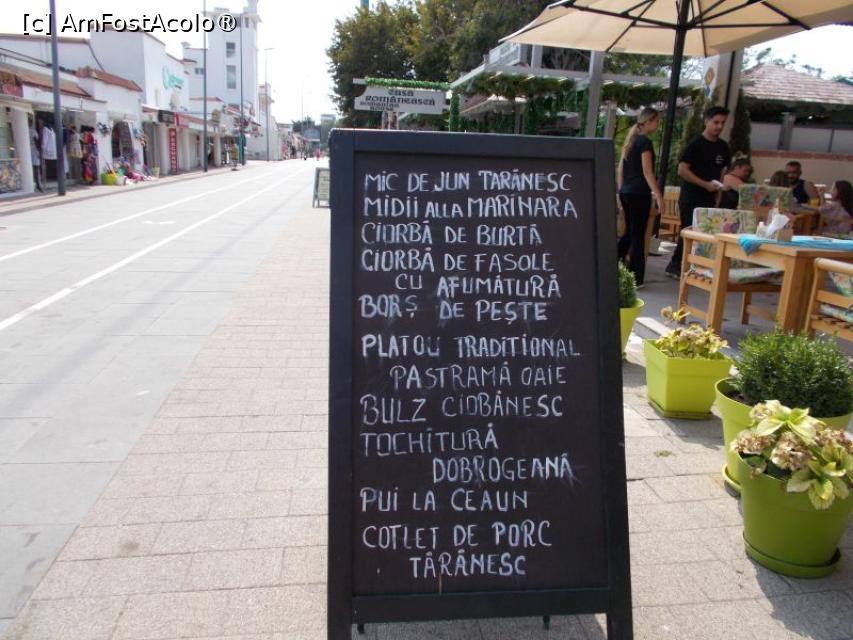 [c] AmFostAcolo®
casa
românească
MIC DE JUN TARĂNESC
MIDII ALLA MARINARA
CIORBĂ DE BURTĂ
CIORBĂ DE FASOLE
CU AFUMĂTURĂ
BORȘ DE PEȘTE
PLATOU TRADITIONAL
PASTRAMĂ OAIE
BULZ CIOBĂNESC
TOCHITURĂ
DOBROGEANĂ
PUI LA CEAUN
COTLET DE PORC
TĂRĂNESC